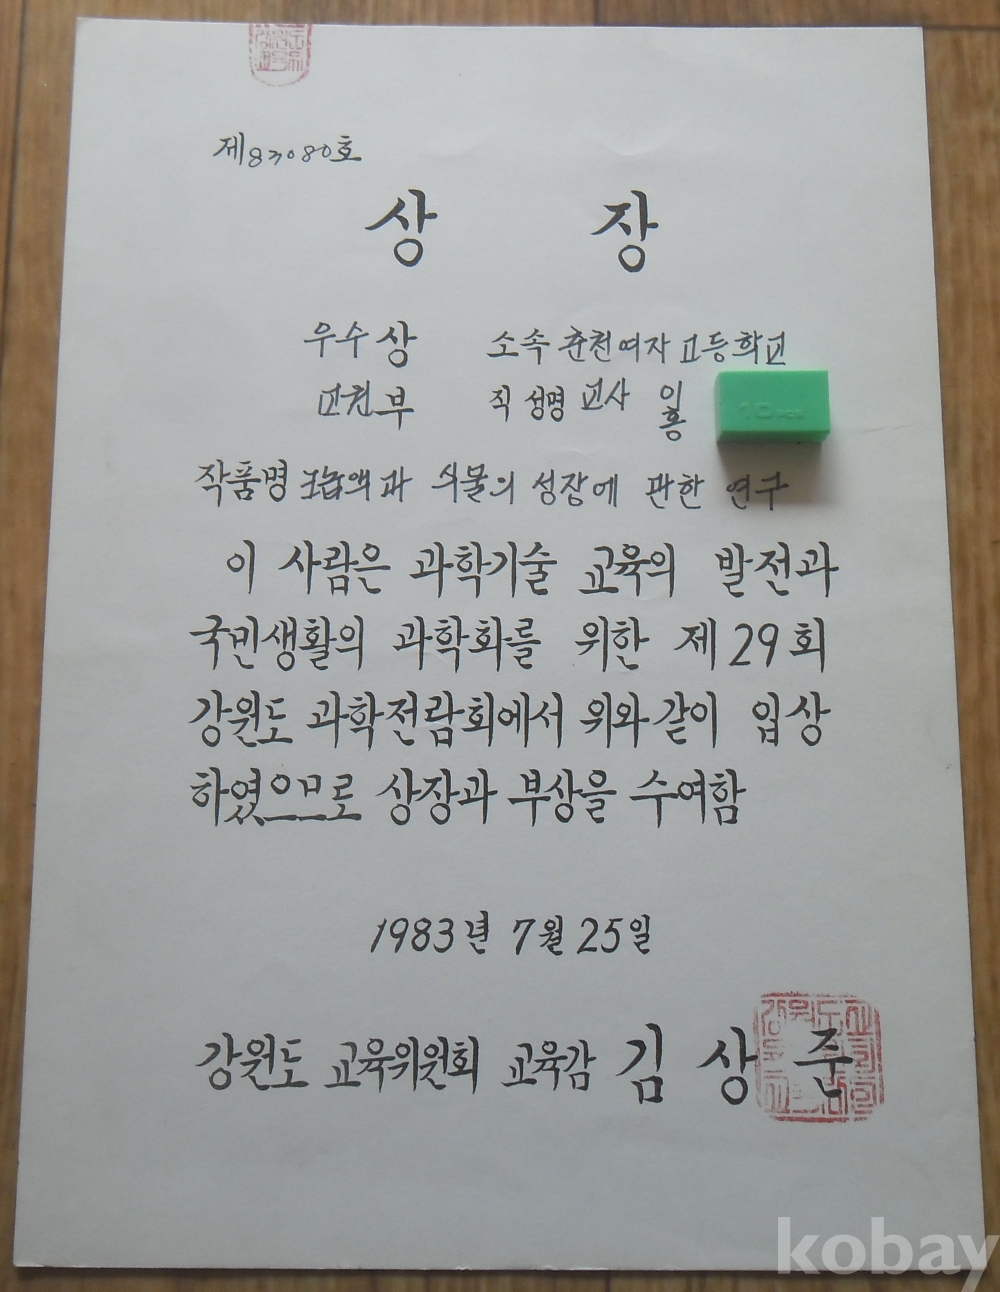 제83080호
상 장
우수상 소속 춘천여자고등학교
교원부 직 성명 교사 이홍
작품명 과 식물의 성장에 관한 연구
이 사람은 과학기술 교육의 발전과
국민생활의 과학화를 위한 제29회
강원도 과학전람회에서 위와같이 입상
하였으므로 상장과 부상을 수여함
1983년 7월 25일
강원도 교육위원회 교육감 김 상 준
kobay